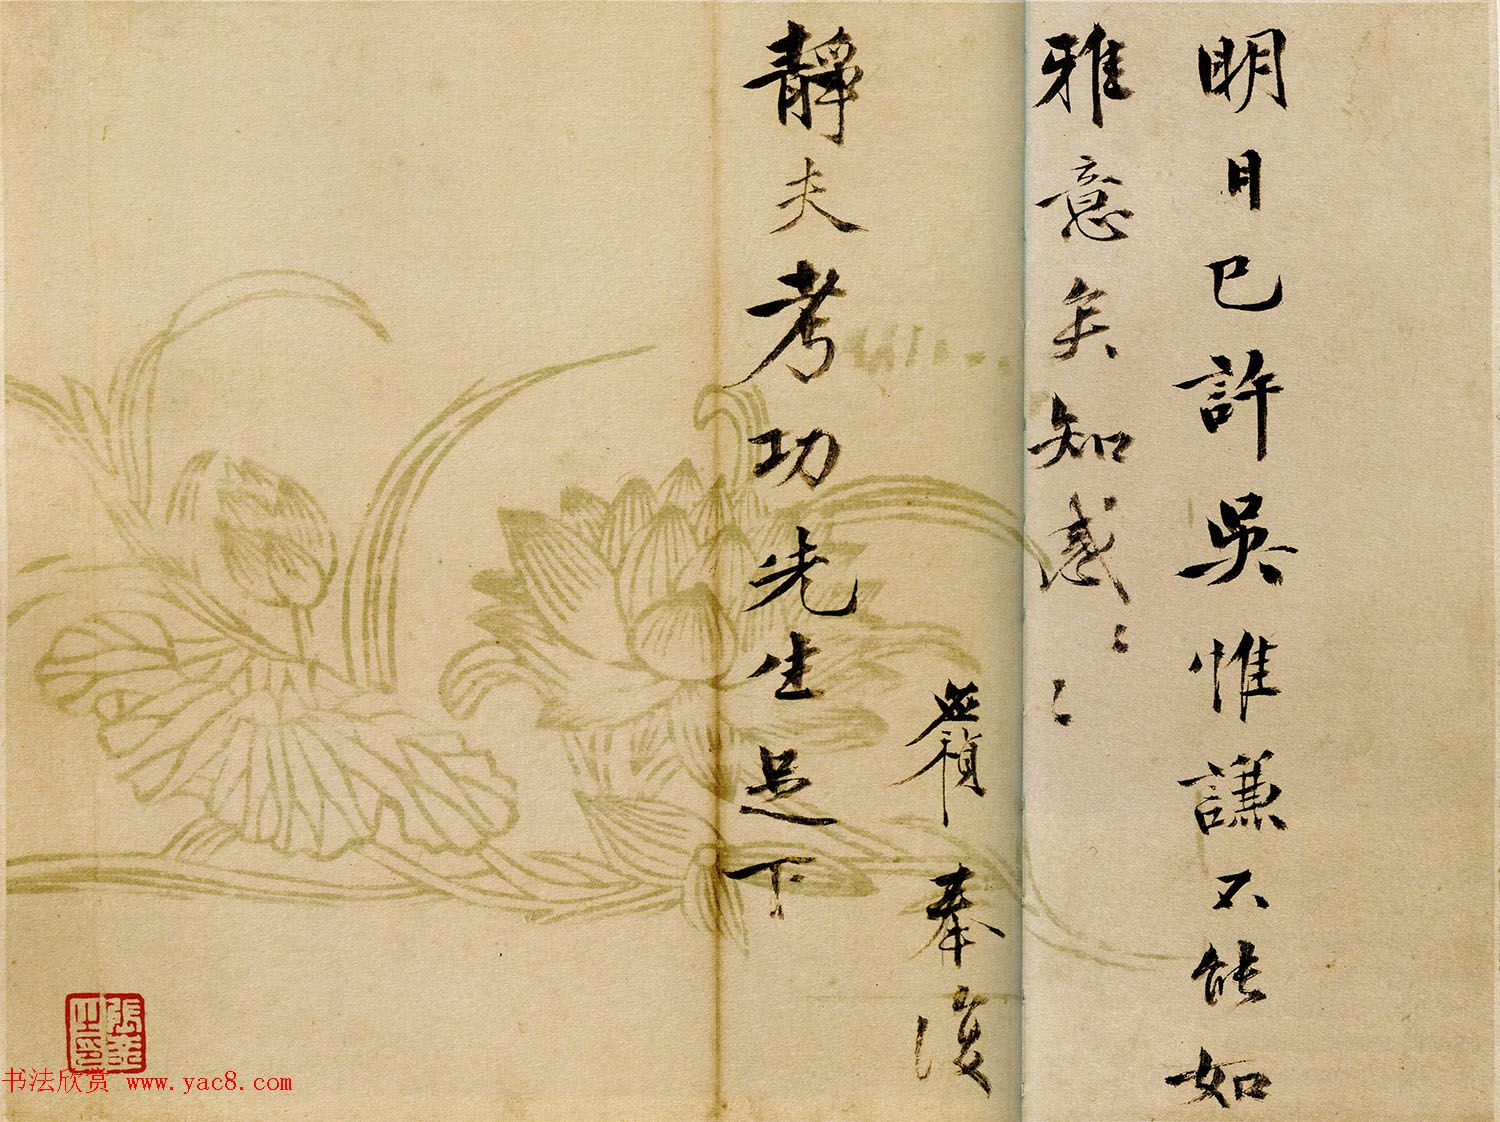 明日已許吳惟謙不能如
雅意矣知感〻〻
應禎奉復
靜夫考功先生足下
书法欣赏 www.yac8.com